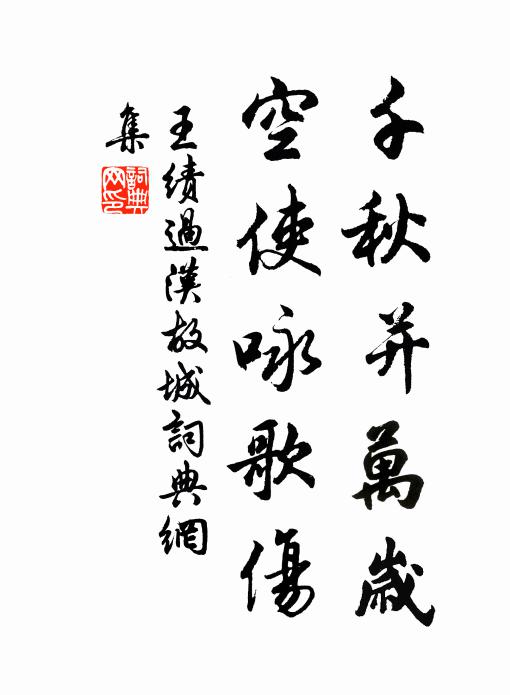 千秋并萬歲
空使咏歌傷
王績過漢故城詞典網
集
詞典
网印